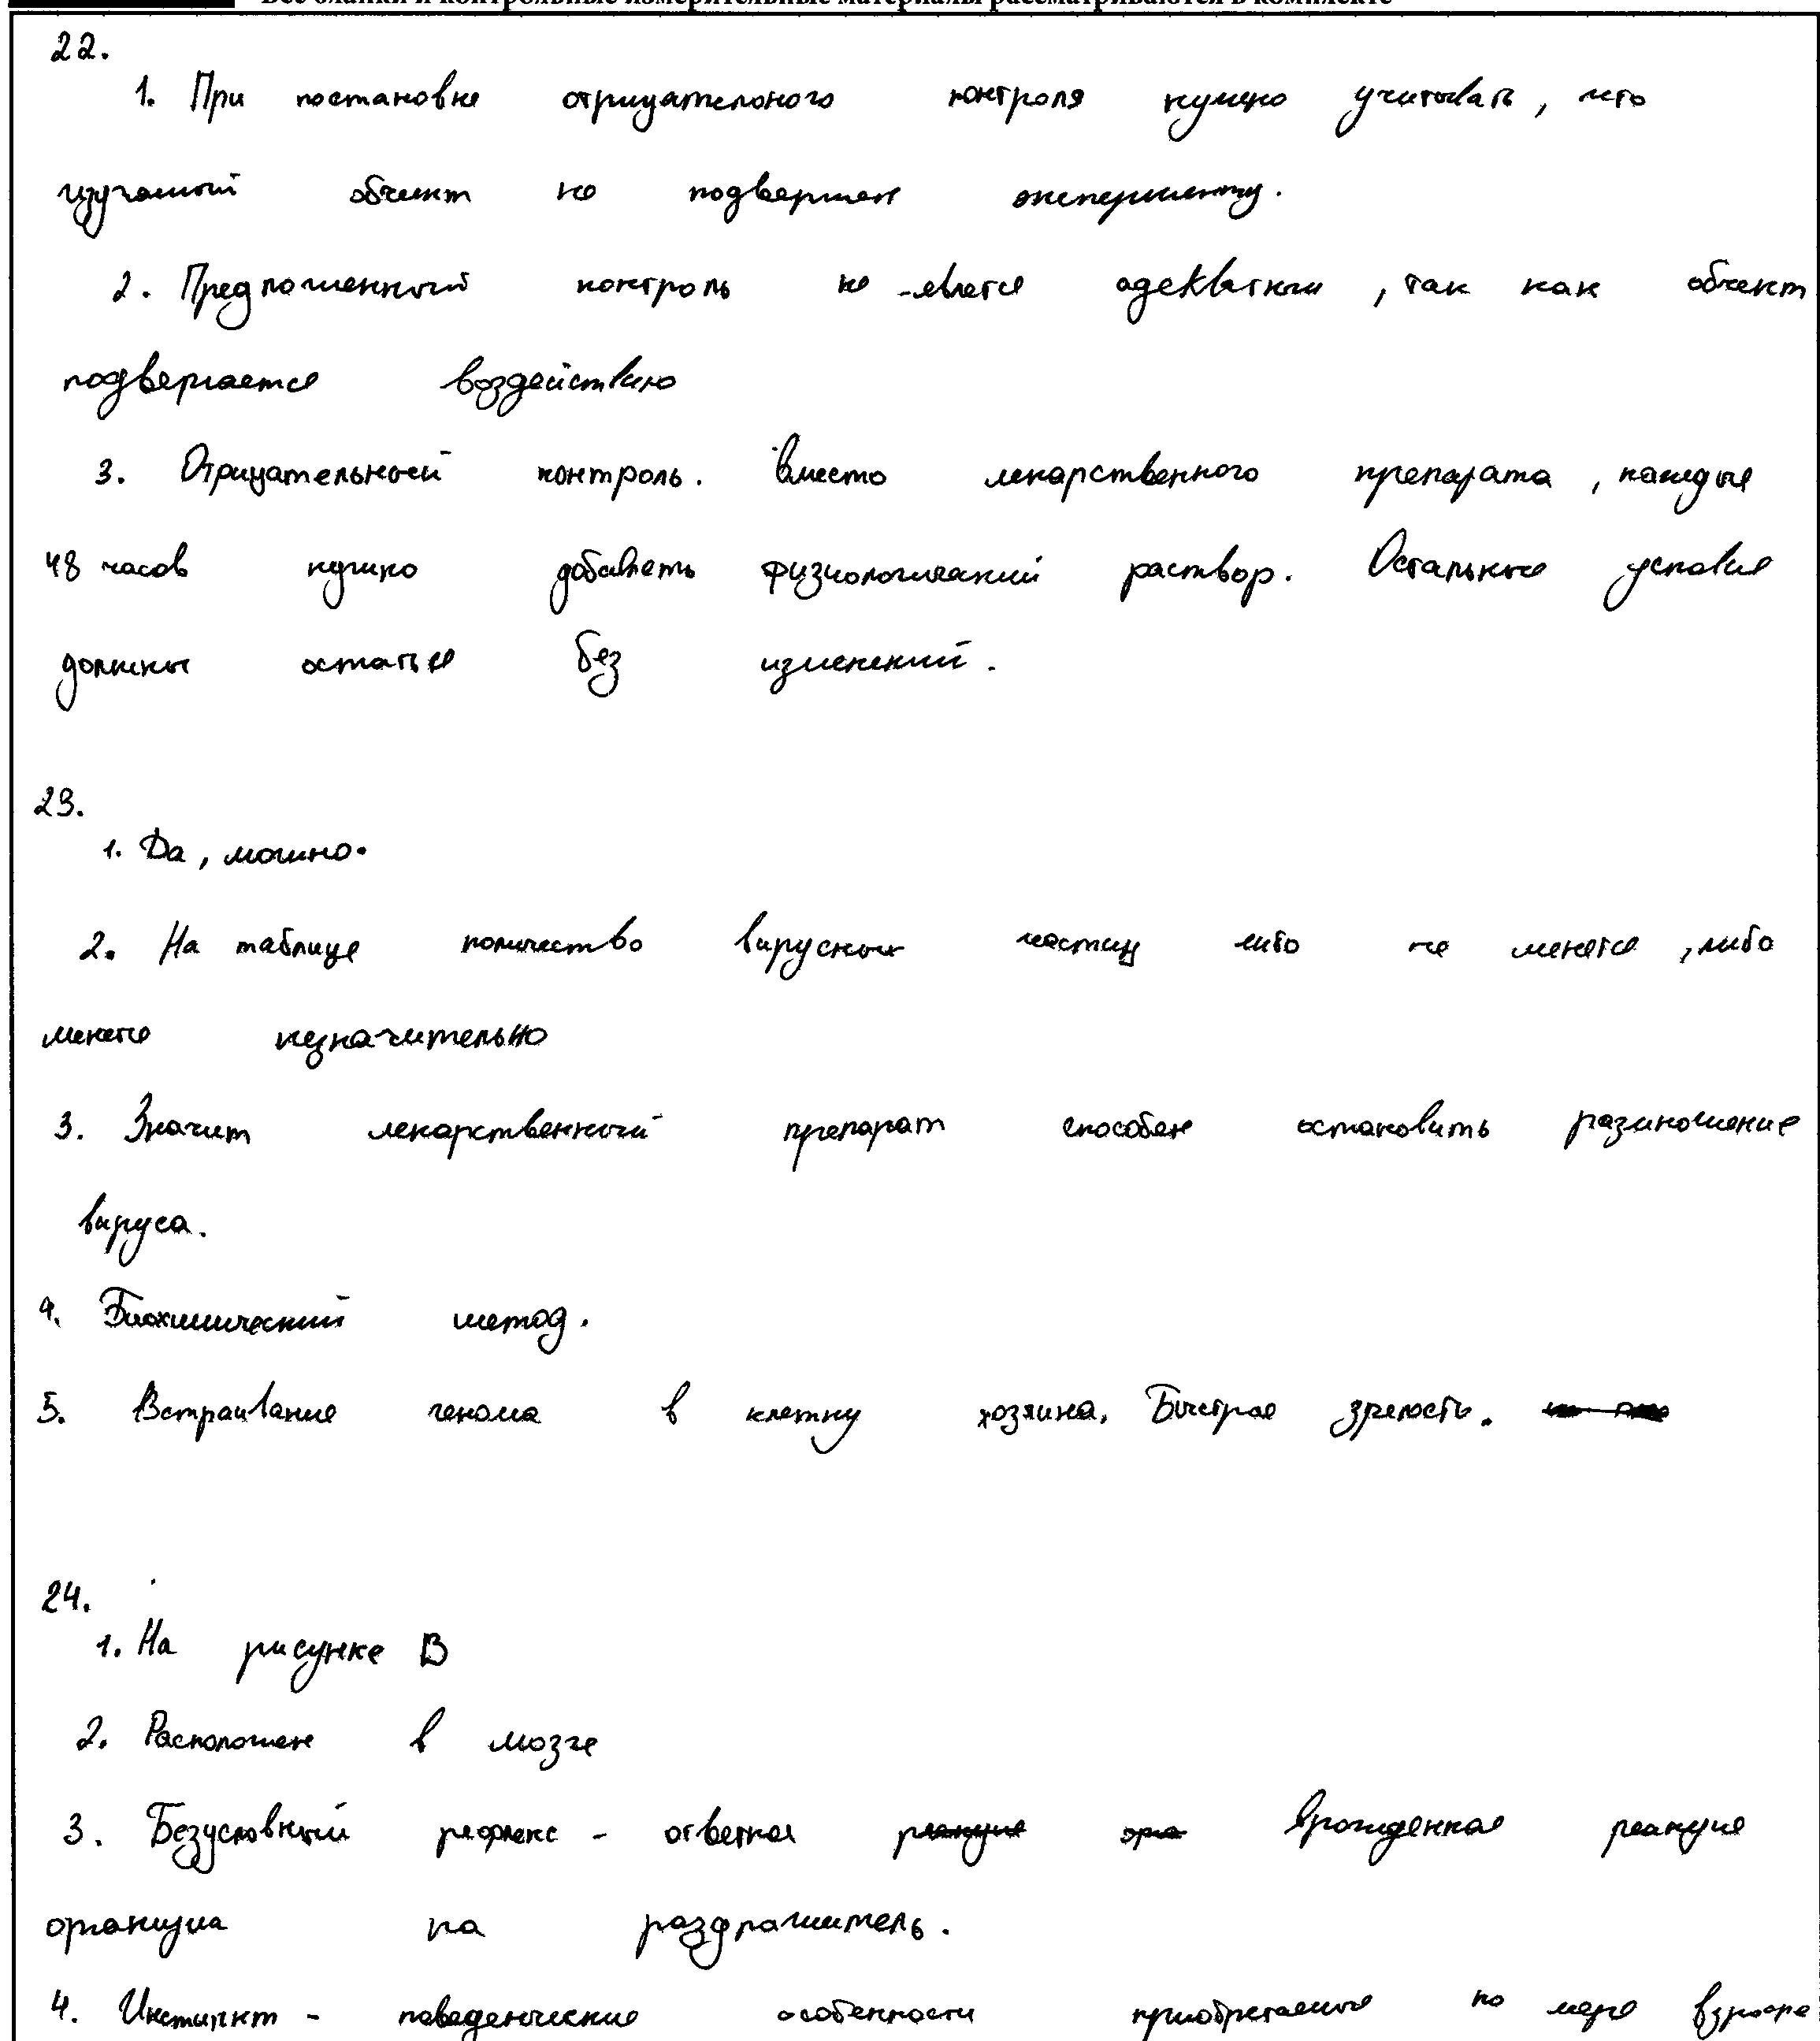 Все бланки и контрольные измерительные материалы рассматриваются в комплекте
22.
1. При постановке отрицательного контроля нужно учитывать, что
изучаемый объект не подвержен эксперименту.
2. Предложенный контроль не является адекватным, так как объект
подвергается воздействию
3. Отрицательный контроль. Вместо лекарственного препарата, каждые
48 часов нужно добавлять физиологический раствор. Остальные условия
должны остаться без изменений.
23.
1. Да, можно.
2. На таблице количество вирусных частиц либо не менятся, либо
менятся незначительно
3. Значит лекарственный препарат способен остановить размножение
вируса.
4. Биохимический метод.
5. Встраивание генома в клетку хозяина. Быстрая зрелость.
24.
1. На рисунке В
2. Расположен в мозге
3. Безусловный рефлекс - ответная реакция врожденная реакция
организма на раздражитель.
4. Инстинкт - поведенческие особенности приобретаемые по мере